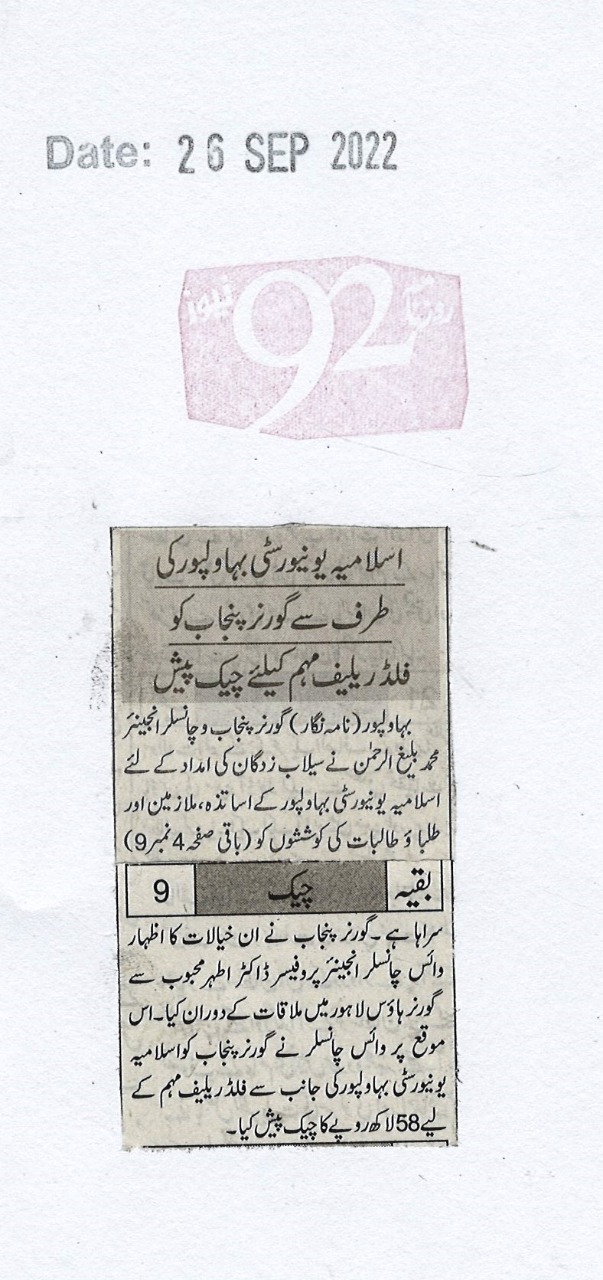 Date: 26 SEP 2022
روزنامہ 92 نیوز
اسلامیہ یونیورسٹی بہاولپور کی
طرف سے گورنر پنجاب کو
فلڈ ریلیف مہم کیلئے چیک پیش
بہاولپور (نامہ نگار) گورنر پنجاب و چانسلر انجینئر
محمد بلیغ الرحمٰن نے سیلاب زدگان کی امداد کے لئے
اسلامیہ یونیورسٹی بہاولپور کے اساتذہ، ملازمین اور
طلبا ؤ طالبات کی کوششوں کو (باقی صفحہ 4 نمبر 9)
بقیہ چیک 9
سراہا ہے ۔ گورنر پنجاب نے ان خیالات کا اظہار
وائس چانسلر انجینئر پروفیسر ڈاکٹر اطہر محبوب سے
گورنر ہاؤس لاہور میں ملاقات کے دوران کیا۔ اس
موقع پر وائس چانسلر نے گورنر پنجاب کو اسلامیہ
یونیورسٹی بہاولپور کی جانب سے فلڈ ریلیف مہم کے
لیے 58 لاکھ روپے کا چیک پیش کیا۔